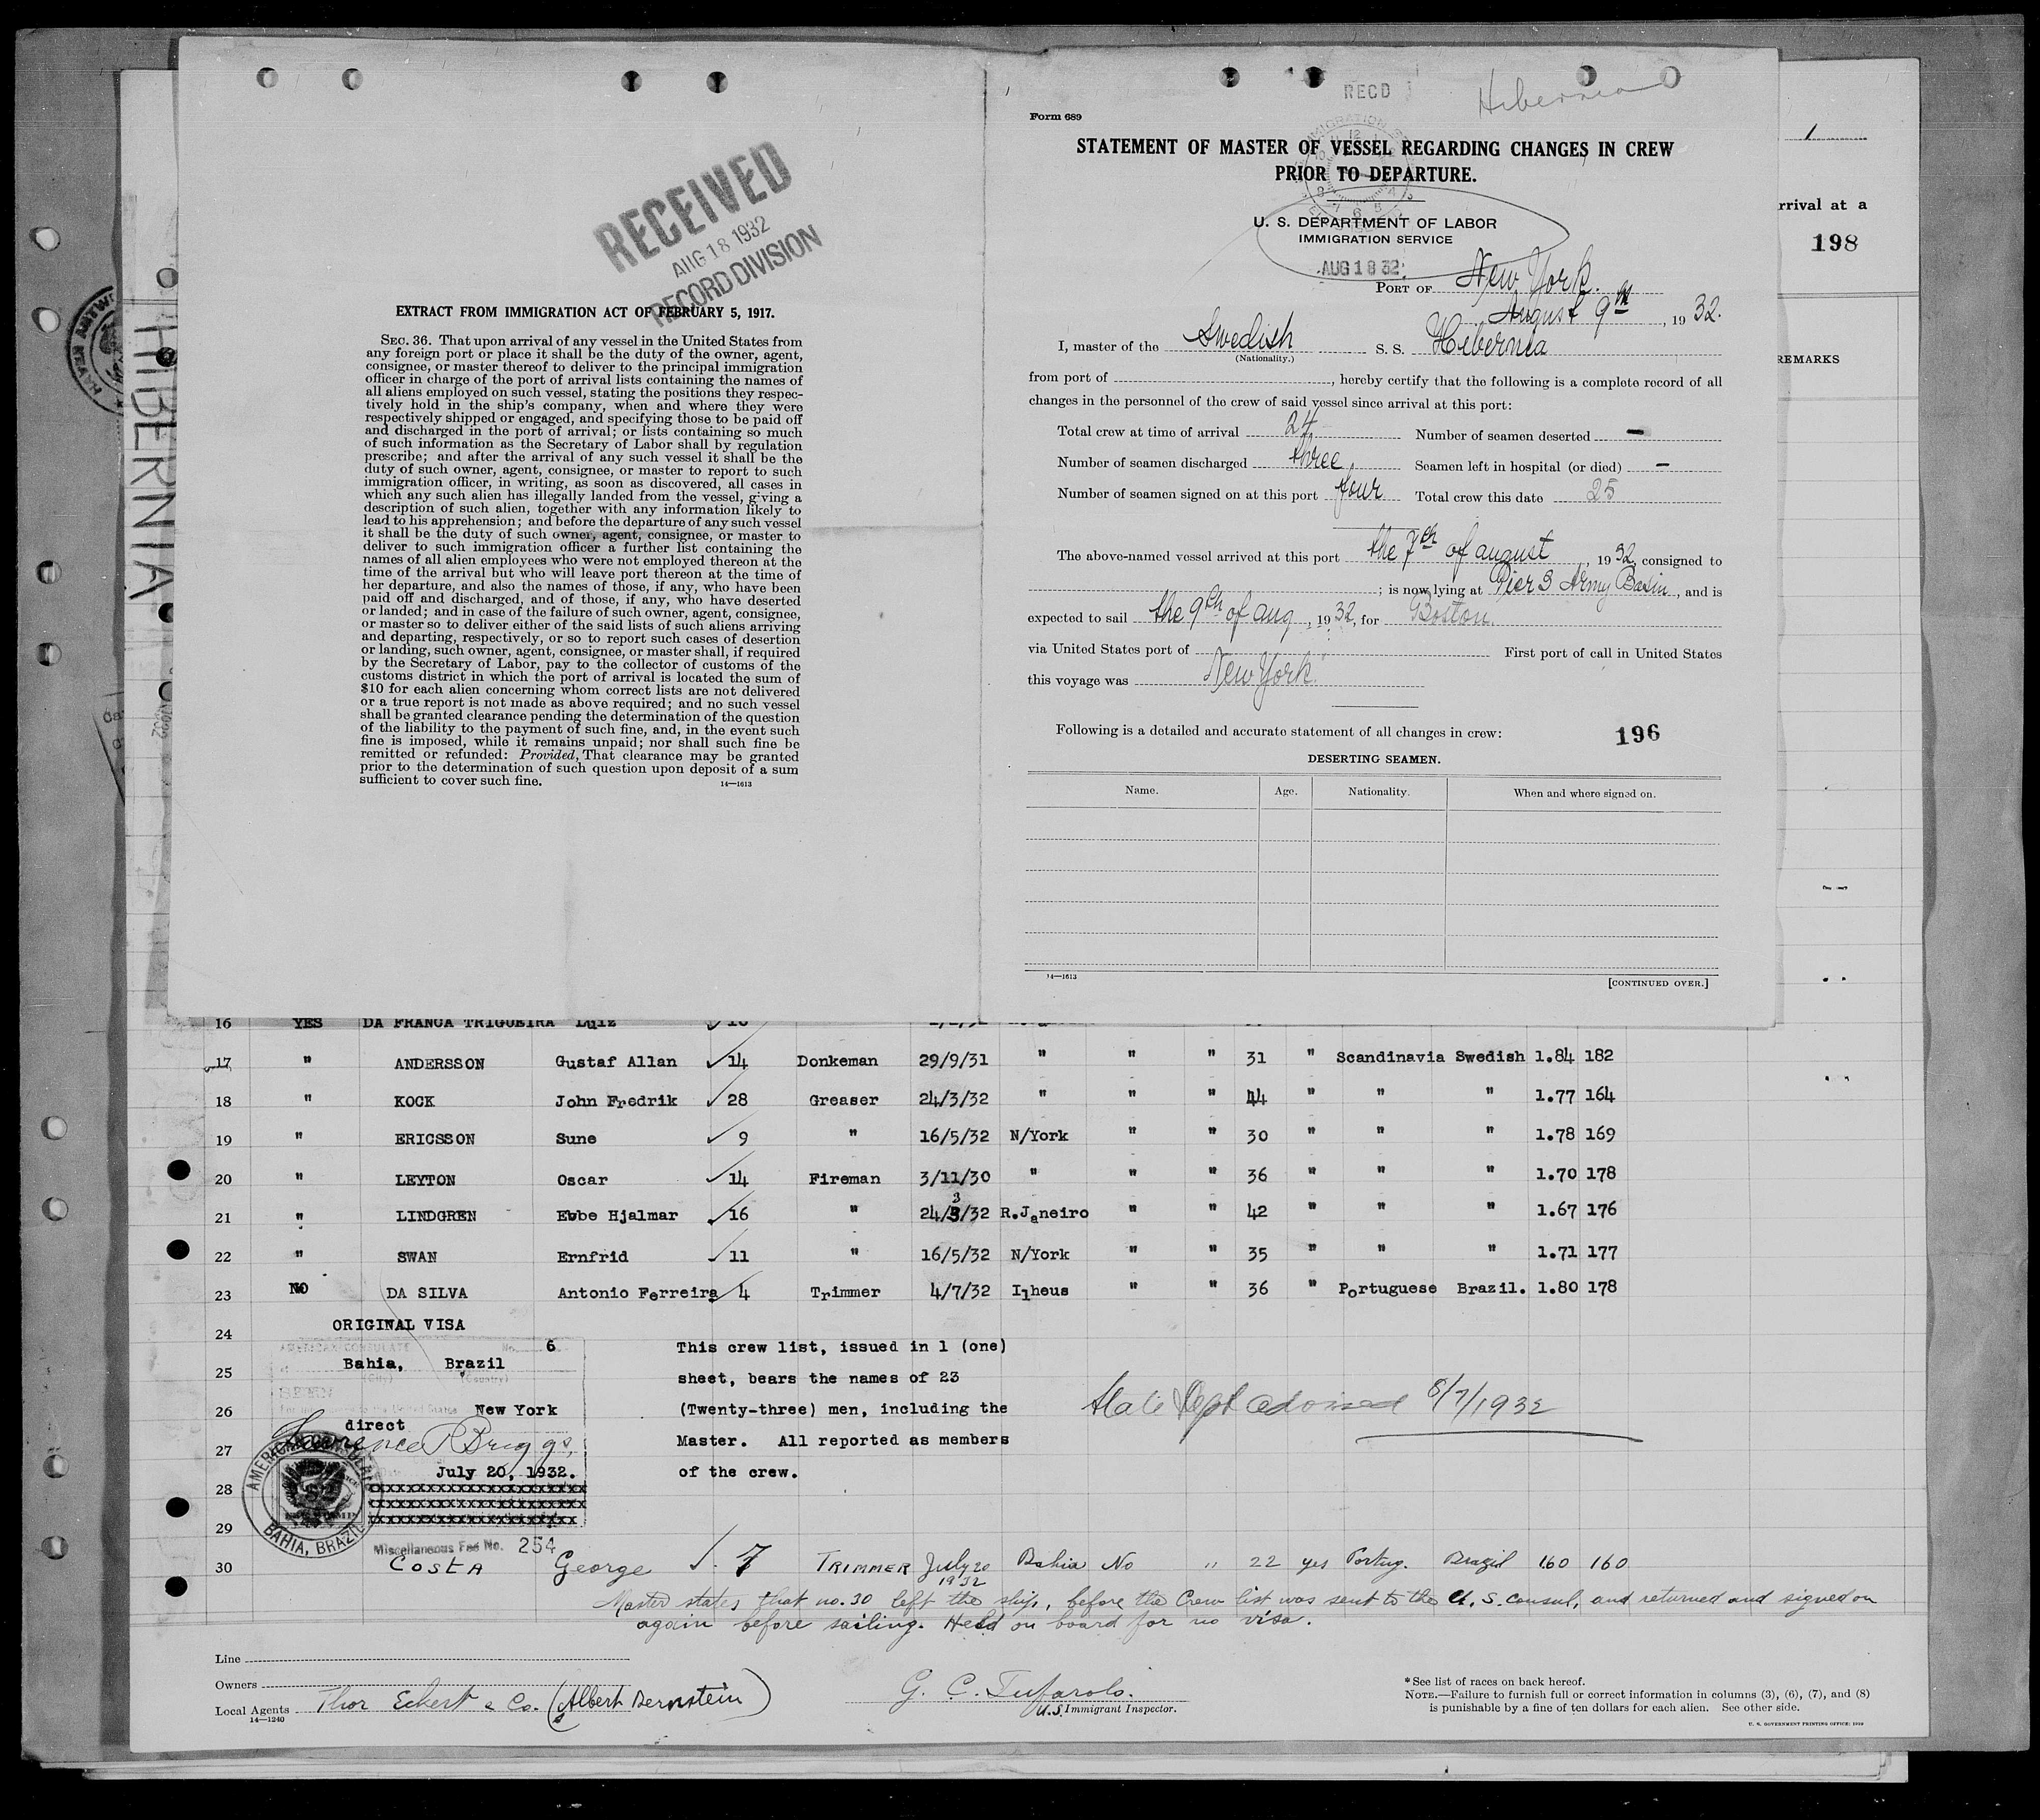 RECEIVED
AUG 18 1932
RECORD DIVISION
EXTRACT FROM IMMIGRATION ACT OF FEBRUARY 5, 1917.
SEC. 36. That upon arrival of any vessel in the United States from
any foreign port or place it shall be the duty of the owner, agent,
consignee, or master thereof to deliver to the principal immigration
officer in charge of the port of arrival lists containing the names of
all aliens employed on such vessel, stating the positions they respec-
tively hold in the ship's company, when and where they were
respectively shipped or engaged, and specifying those to be paid off
and discharged in the port of arrival; or lists containing so much
of such information as the Secretary of Labor shall by regulation
prescribe; and after the arrival of any such vessel it shall be the
duty of such owner, agent, consignee, or master to report to such
immigration officer, in writing, as soon as discovered, all cases in
which any such alien has illegally landed from the vessel, giving a
description of such alien, together with any information likely to
lead to his apprehension; and before the departure of any such vessel
it shall be the duty of such owner, agent, consignee, or master to
deliver to such immigration officer a further list containing the
names of all alien employees who were not employed thereon at the
time of the arrival but who will leave port thereon at the time of
her departure, and also the names of those, if any, who have been
paid off and discharged, and of those, if any, who have deserted
or landed; and in case of the failure of such owner, agent, consignee,
or master so to deliver either of the said lists of such aliens arriving
and departing, respectively, or so to report such cases of desertion
or landing, such owner, agent, consignee, or master shall, if required
by the Secretary of Labor, pay to the collector of customs of the
customs district in which the port of arrival is located the sum of
$10 for each alien concerning whom correct lists are not delivered
or a true report is not made as above required; and no such vessel
shall be granted clearance pending the determination of the question
of the liability to the payment of such fine, and, in the event such
fine is imposed, while it remains unpaid; nor shall such fine be
remitted or refunded: Provided, That clearance may be granted
prior to the determination of such question upon deposit of a sum
sufficient to cover such fine.
14—1613
HIBERNIA
RECD
Hibernia
Form 689
STATEMENT OF MASTER OF VESSEL REGARDING CHANGES IN CREW
PRIOR TO DEPARTURE.
U. S. DEPARTMENT OF LABOR
IMMIGRATION SERVICE
AUG 18 32
PORT OF New York.
August 9th, 1932.
I, master of the Swedish S. S. Hibernia
(Nationality.)
from port of , hereby certify that the following is a complete record of all
changes in the personnel of the crew of said vessel since arrival at this port:
Total crew at time of arrival 24 Number of seamen deserted —
Number of seamen discharged three Seamen left in hospital (or died) —
Number of seamen signed on at this port four Total crew this date 25
The above-named vessel arrived at this port the 7th of august, 1932, consigned to
; is now lying at Pier 3 Army Basin, and is
expected to sail the 9th of aug, 1932, for Boston.
via United States port of First port of call in United States
this voyage was New York.
Following is a detailed and accurate statement of all changes in crew:
196
DESERTING SEAMEN.
Name. Age. Nationality. When and where signed on.
14—1613
[CONTINUED OVER.]
1
rrival at a
198
REMARKS
16 YES DA FRANCA TRIGUEIRA Luiz
17 " ANDERSSON Gustaf Allan 14 Donkeman 29/9/31 " " " 31 " Scandinavia Swedish 1.84 182
18 " KOCK John Fredrik 28 Greaser 24/3/32 " " " 44 " " " 1.77 164
19 " ERICSSON Sune 9 " 16/5/32 N/York " " 30 " " " 1.78 169
20 " LEYTON Oscar 14 Fireman 3/11/30 " " " 36 " " " 1.70 178
21 " LINDGREN Ebbe Hjalmar 16 " 24/3/32 R.Janeiro " " 42 " " " 1.67 176
22 " SWAN Ernfrid 11 " 16/5/32 N/York " " 35 " " " 1.71 177
23 NO DA SILVA Antonio Ferreira 4 Trimmer 4/7/32 Ilheus " " 36 " Portuguese Brazil. 1.80 178
24 ORIGINAL VISA
AMERICAN CONSULATE No. 6
25 Bahia, Brazil
(City) (Country)
26 New York
direct
27 Clarence P Briggs,
July 20, 1932.
28
29
AMERICAN CONSULATE
BAHIA, BRAZIL
Miscellaneous Fee No. 254
This crew list, issued in 1 (one)
sheet, bears the names of 23
(Twenty-three) men, including the
Master. All reported as members
of the crew.
State Dept advised 8/7/1932
30 COSTA George 7 TRIMMER July 20 1932 Bahia No " 22 yes Portug. Brazil 160 160
Master states that no. 30 left the ship, before the Crew list was sent to the U. S. consul, and returned and signed on
again before sailing. Held on board for no visa.
Line
Owners
Local Agents Thor Eckert & Co. (Albert Bernstein)
14—1240
G. C. Tufarolo.
U.S. Immigrant Inspector.
*See list of races on back hereof.
NOTE.—Failure to furnish full or correct information in columns (3), (6), (7), and (8)
is punishable by a fine of ten dollars for each alien. See other side.
U. S. GOVERNMENT PRINTING OFFICE: 1929